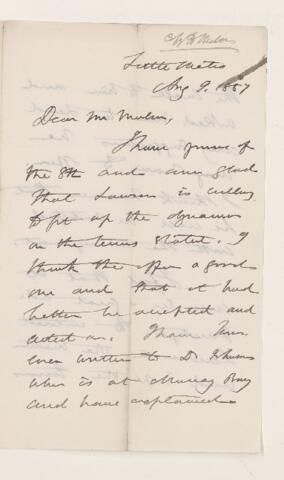 Little Metis
Aug 9. 1887
Dear Mr
I have yours of
the 8th and am glad
that Lawson is
to fit up the dynamos
on the terms stated. I
think the offer a good
one and that it had
better be accepted and
acted on. I have
even written to Dr Johnson
who is at Murray Bay
and have explained